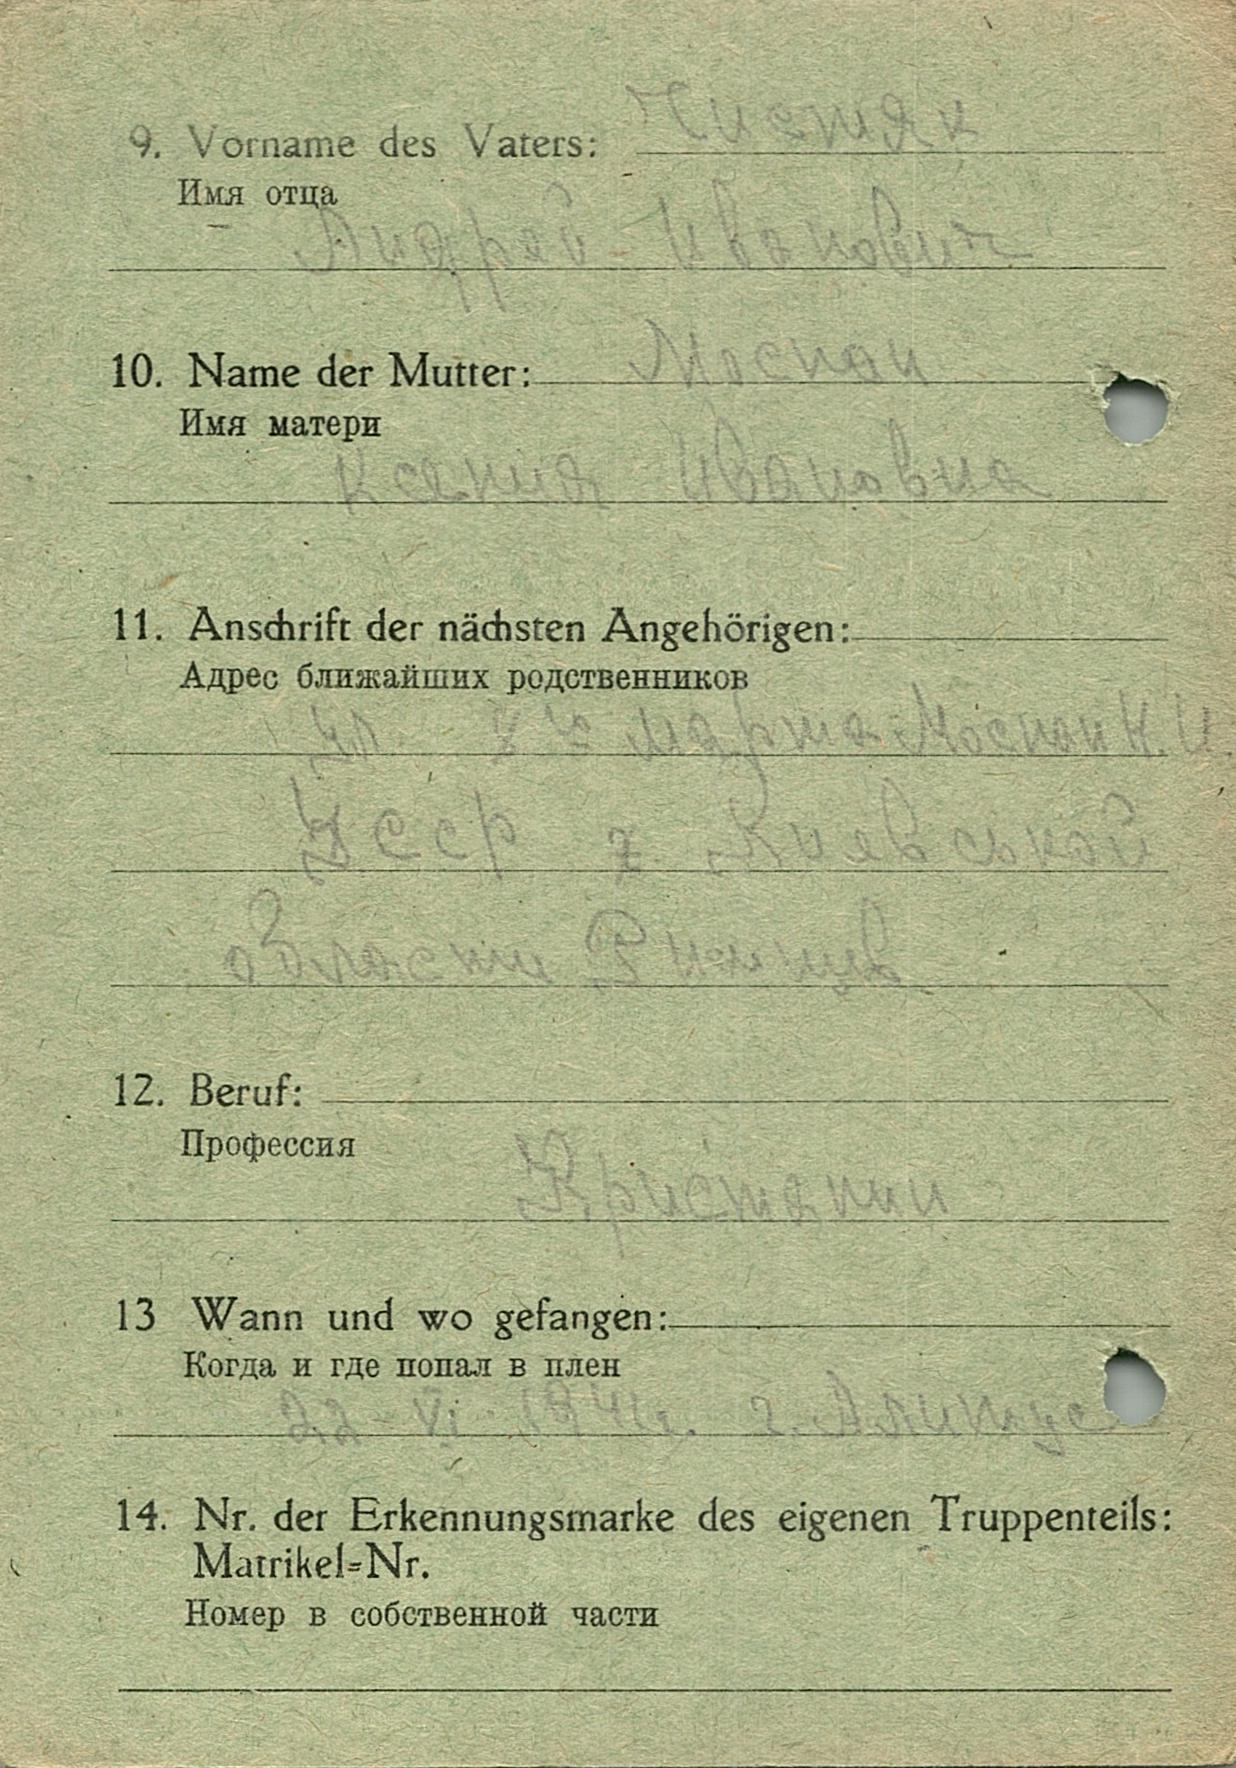 9. Vorname des Vaters: Чистяк
Имя отца
Андрей Иванович
10. Name der Mutter: Моспан
Имя матери
Ксения Ивановна
11. Anschrift der nächsten Angehörigen:
Адрес ближайших родственников
8 го марта Моспан К. И.
УССР Киевской
области
12. Beruf:
Профессия
Кристянин
13 Wann und wo gefangen:
Когда и где попал в плен
22 VI 1941 г. г. Алитус
14. Nr. der Erkennungsmarke des eigenen Truppenteils:
Matrikel=Nr.
Номер в собственной части